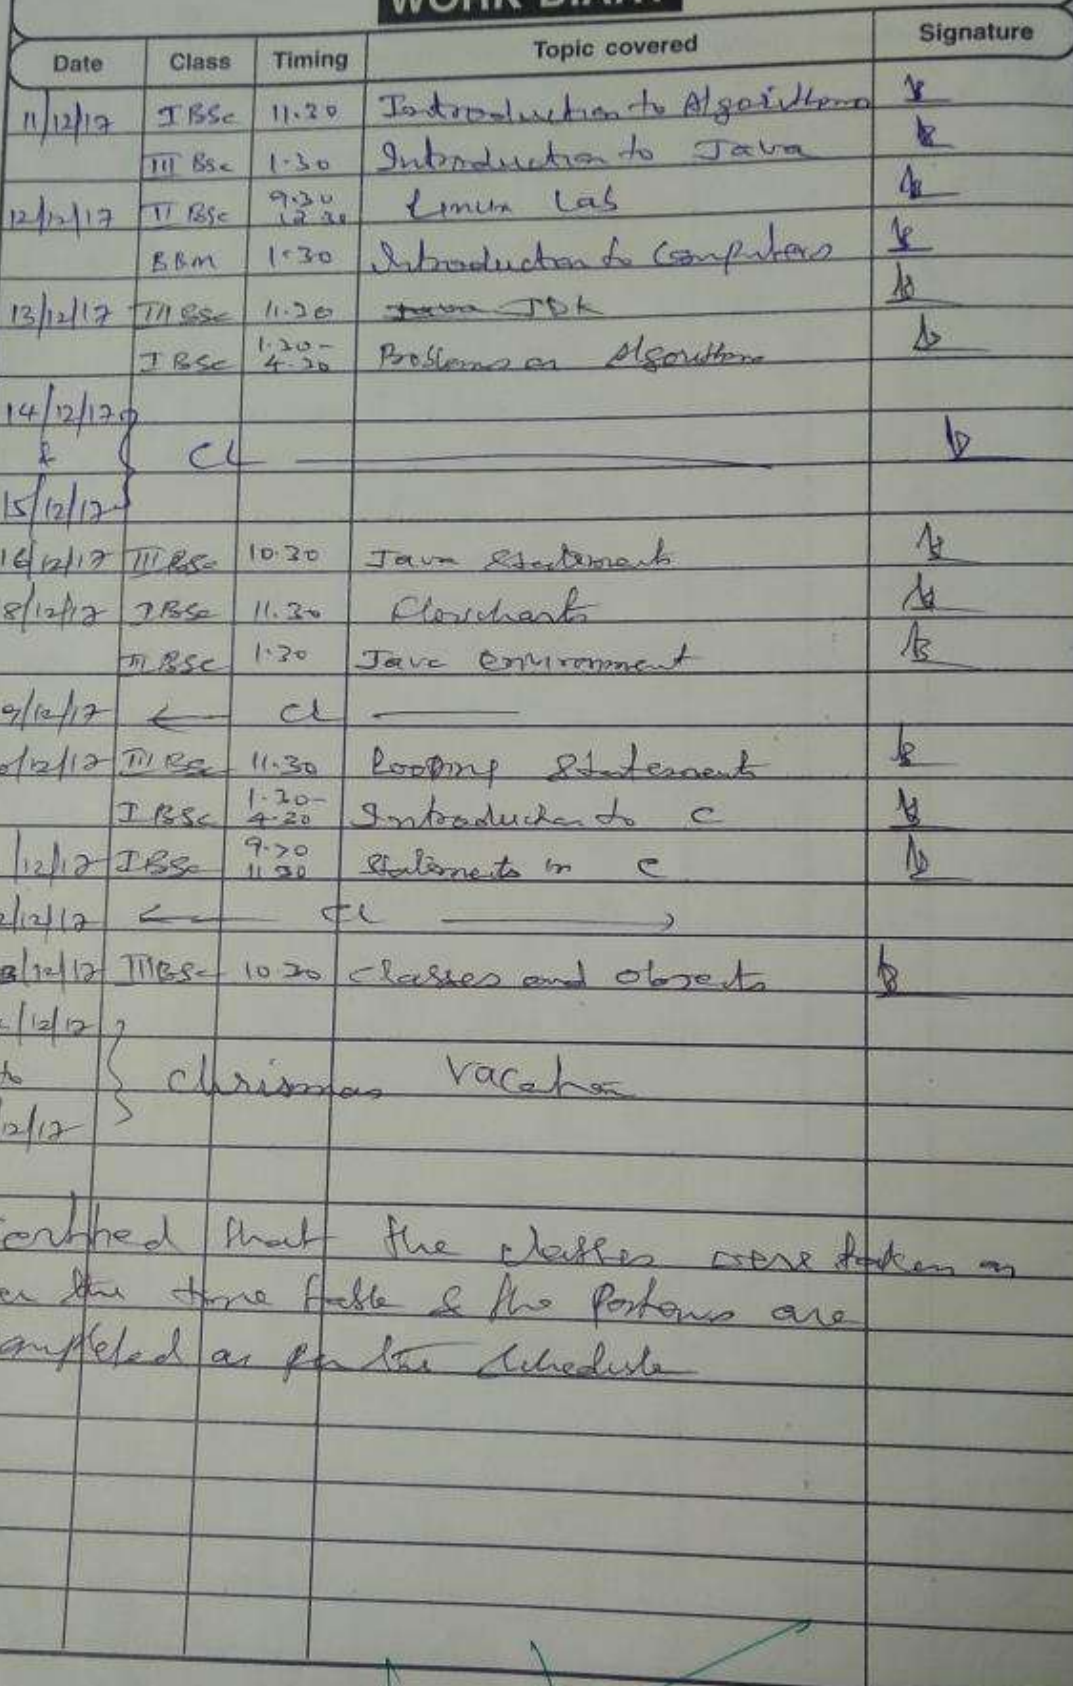 WORK DIARY
Date Class Timing Topic covered Signature
11/12/17 I BSc 11.30 Introduction to Algorithms
III BSc 1.30 Introduction to Java
12/12/17 II BSc 9.30 12.30 Linux Lab
BBM 1.30 Introduction to Computers
13/12/17 III BSc 11.30 JDK
I BSc 1.30- 4.30 Problems on Algorithms
14/12/17
& CL
15/12/17
16/12/17 III BSc 10.30 Java Statements
8/12/17 I BSc 11.30 Flowcharts
III BSc 1.30 Java environment
9/12/17 CL
0/12/17 III BSc 11.30 Looping Statements
I BSc 1.30- 4.30 Introduction to C
/12/17 I BSc 9.30 11.30 Statements in C
2/12/17 CL
3/12/17 III BSc 10.30 Classes and objects
/12/17
to Chrismas Vacation
12/17
ertified that the classes were taken as
er the time table & the Portions are
ompleted as per the schedule